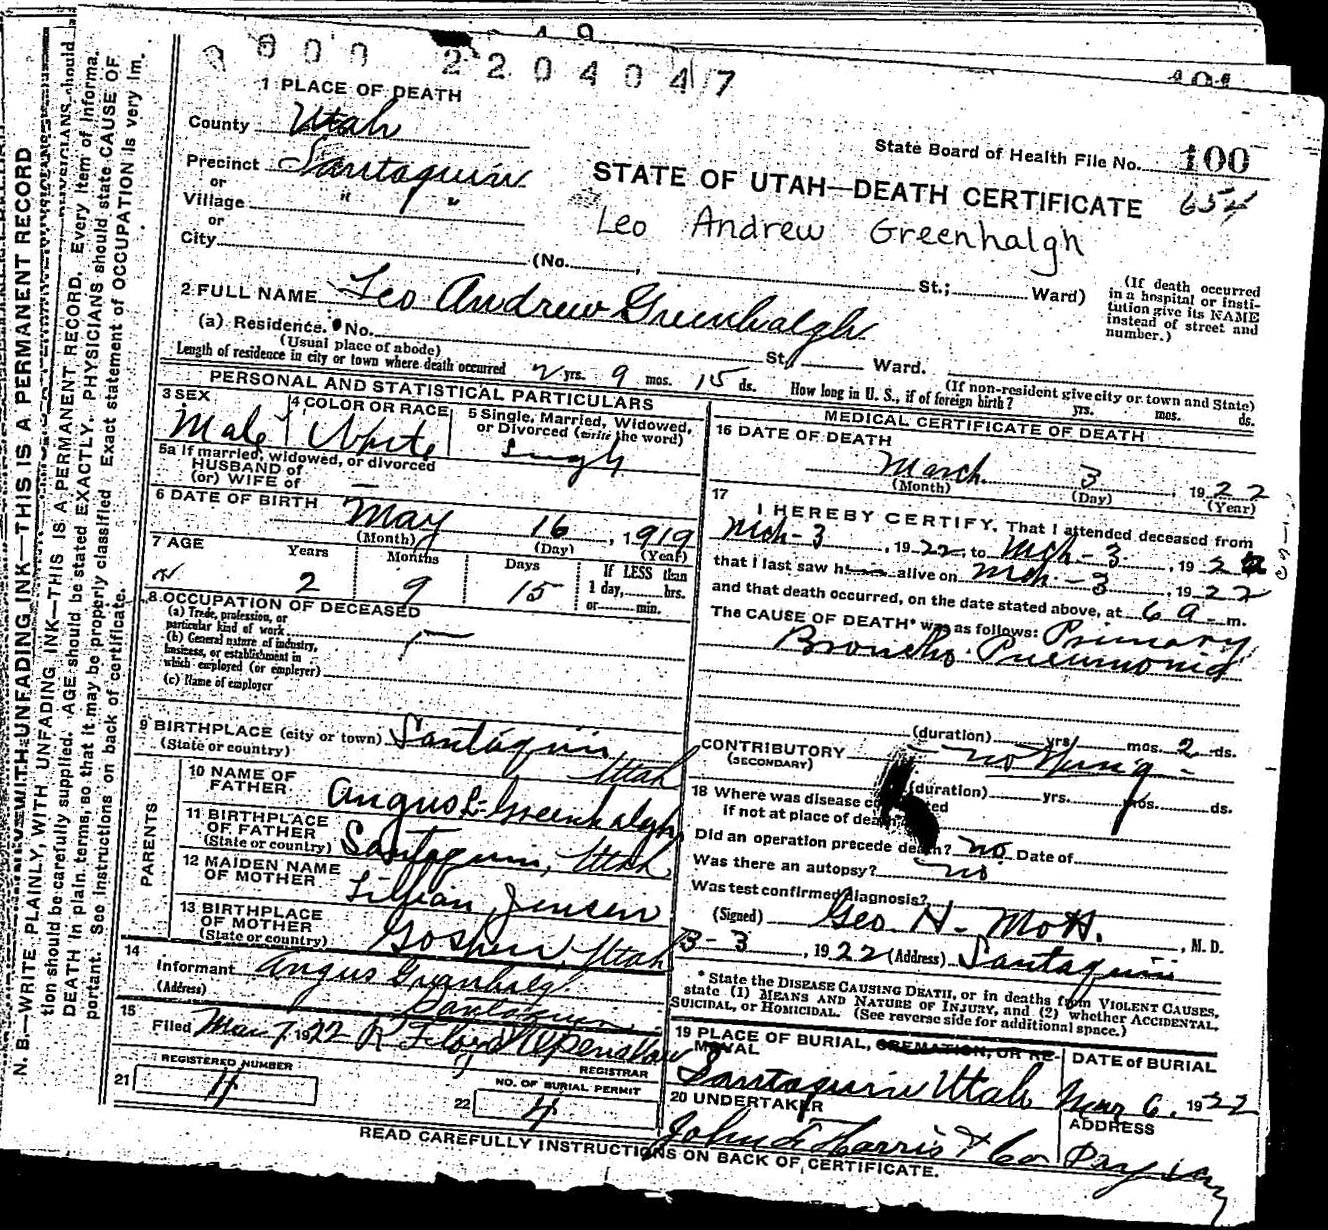 49
3 0 0 0 2 2 0 4 0 4 7
101
1 PLACE OF DEATH
County Utah
State Board of Health File No. 100
Precinct Santaquin
654
or
STATE OF UTAH—DEATH CERTIFICATE
Village " "
Leo Andrew Greenhalgh
or
City
(No. , St.; Ward)
(If death occurred in a hospital or insti-
tution give its NAME
instead of street and
number.)
2 FULL NAME Leo Andrew Greenhalgh
(a) Residence. No. St., Ward.
(Usual place of abode)
(If non-resident give city or town and State)
Length of residence in city or town where death occurred 2 yrs. 9 mos. 15 ds. How long in U. S., if of foreign birth? yrs. mos. ds.
PERSONAL AND STATISTICAL PARTICULARS
3 SEX
Male
4 COLOR OR RACE
White
5 Single, Married, Widowed,
or Divorced (write the word)
Single
5a If married, widowed, or divorced
HUSBAND of
(or) WIFE of —
6 DATE OF BIRTH May 16, 1919
(Month) (Day) (Year)
7 AGE Years Months Days If LESS than
1 day, hrs.
or min.
2 9 15
8. OCCUPATION OF DECEASED
(a) Trade, profession, or
particular kind of work
(b) General nature of industry,
business, or establishment in
which employed (or employer)
(c) Name of employer
9 BIRTHPLACE (city or town) Santaquin
(State or country) Utah
PARENTS
10 NAME OF
FATHER Angus L. Greenhalgh
11 BIRTHPLACE
OF FATHER
(State or country) Santaquin, Utah
12 MAIDEN NAME
OF MOTHER Lillian Jensen
13 BIRTHPLACE
OF MOTHER
(State or country) Goshen, Utah
14
Informant Angus Greenhalgh
(Address) Santaquin
15
Filed Mar 7 1922 R Floyd
REGISTRAR
REGISTERED NUMBER
21 4
NO. OF BURIAL PERMIT
22 4
MEDICAL CERTIFICATE OF DEATH
16 DATE OF DEATH
March 3 1922
(Month) (Day) (Year)
17
I HEREBY CERTIFY, That I attended deceased from
Mch-3, 1922 to Mch-3, 1922
that I last saw h alive on Mch-3, 1922
and that death occurred, on the date stated above, at 6 a. m.
The CAUSE OF DEATH* was as follows: Primary
Broncho Pneumonia
(duration) yrs. mos. 2 ds.
CONTRIBUTORY nothing
(SECONDARY)
(duration) yrs. mos. ds.
18 Where was disease contracted
if not at place of death?
Did an operation precede death? no Date of
Was there an autopsy? no
Was test confirmed diagnosis?
(Signed) Geo H. Mott, M. D.
3-3, 1922 (Address) Santaquin
* State the DISEASE CAUSING DEATH, or in deaths from VIOLENT CAUSES,
state (1) MEANS AND NATURE OF INJURY, and (2) whether ACCIDENTAL,
SUICIDAL, or HOMICIDAL. (See reverse side for additional space.)
19 PLACE OF BURIAL, CREMATION, OR RE-
MOVAL
Santaquin Utah
DATE of BURIAL
Mar 6, 1922
20 UNDERTAKER
John Harris & Co
ADDRESS
Payson
READ CAREFULLY INSTRUCTIONS ON BACK OF CERTIFICATE.
N. B.—WRITE PLAINLY, WITH UNFADING INK—THIS IS A PERMANENT RECORD
tion should be carefully supplied. AGE should be stated EXACTLY. PHYSICIANS should
DEATH in plain terms, so that it may be properly classified. Exact statement of OCCUPATION is very im-
portant. See instructions on back of certificate.